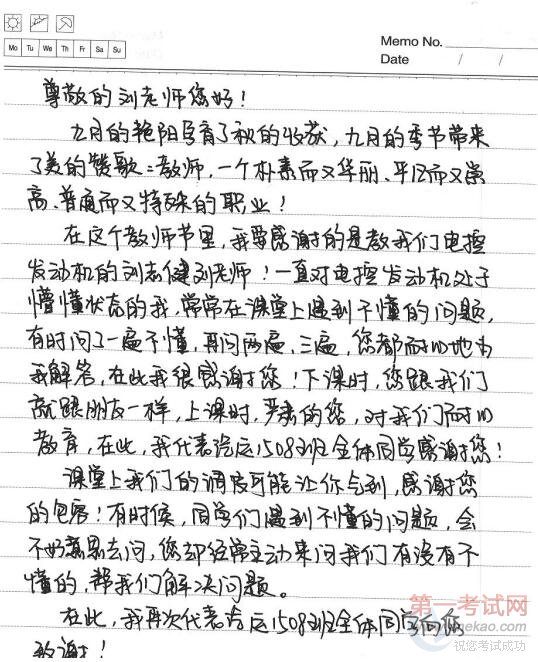 Mo Tu We Th Fr Sa Su
Memo No.
Date / /
尊敬的刘老师您好!
九月的艳阳孕育了秋的收获,九月的季节带来
了美的赞歌:教师,一个朴素而又华丽、平凡而又崇
高、普通而又特殊的职业!
在这个教师节里,我要感谢的是教我们电控
发动机的刘志健刘老师!一直对电控发动机处于
懵懂状态的我,常常在课堂上遇到不懂的问题,
有时问了一遍不懂,再问两遍、三遍,您都耐心地为
我解答,在此我很感谢您!下课时,您跟我们
就跟朋友一样,上课时,严肃的您,对我们耐心
教育,在此,我代表汽运1508班全体同学感谢您!
课堂上我们的调皮可能让你气到,感谢您
的包容!有时候,同学们遇到不懂的问题,会
不好意思去问,您却经常主动来问我们有没有不
懂的,帮我们解决问题。
在此,我再次代表汽运1508班全体同学向您
致谢!
第一考试网
mekao.com
祝您考试成功